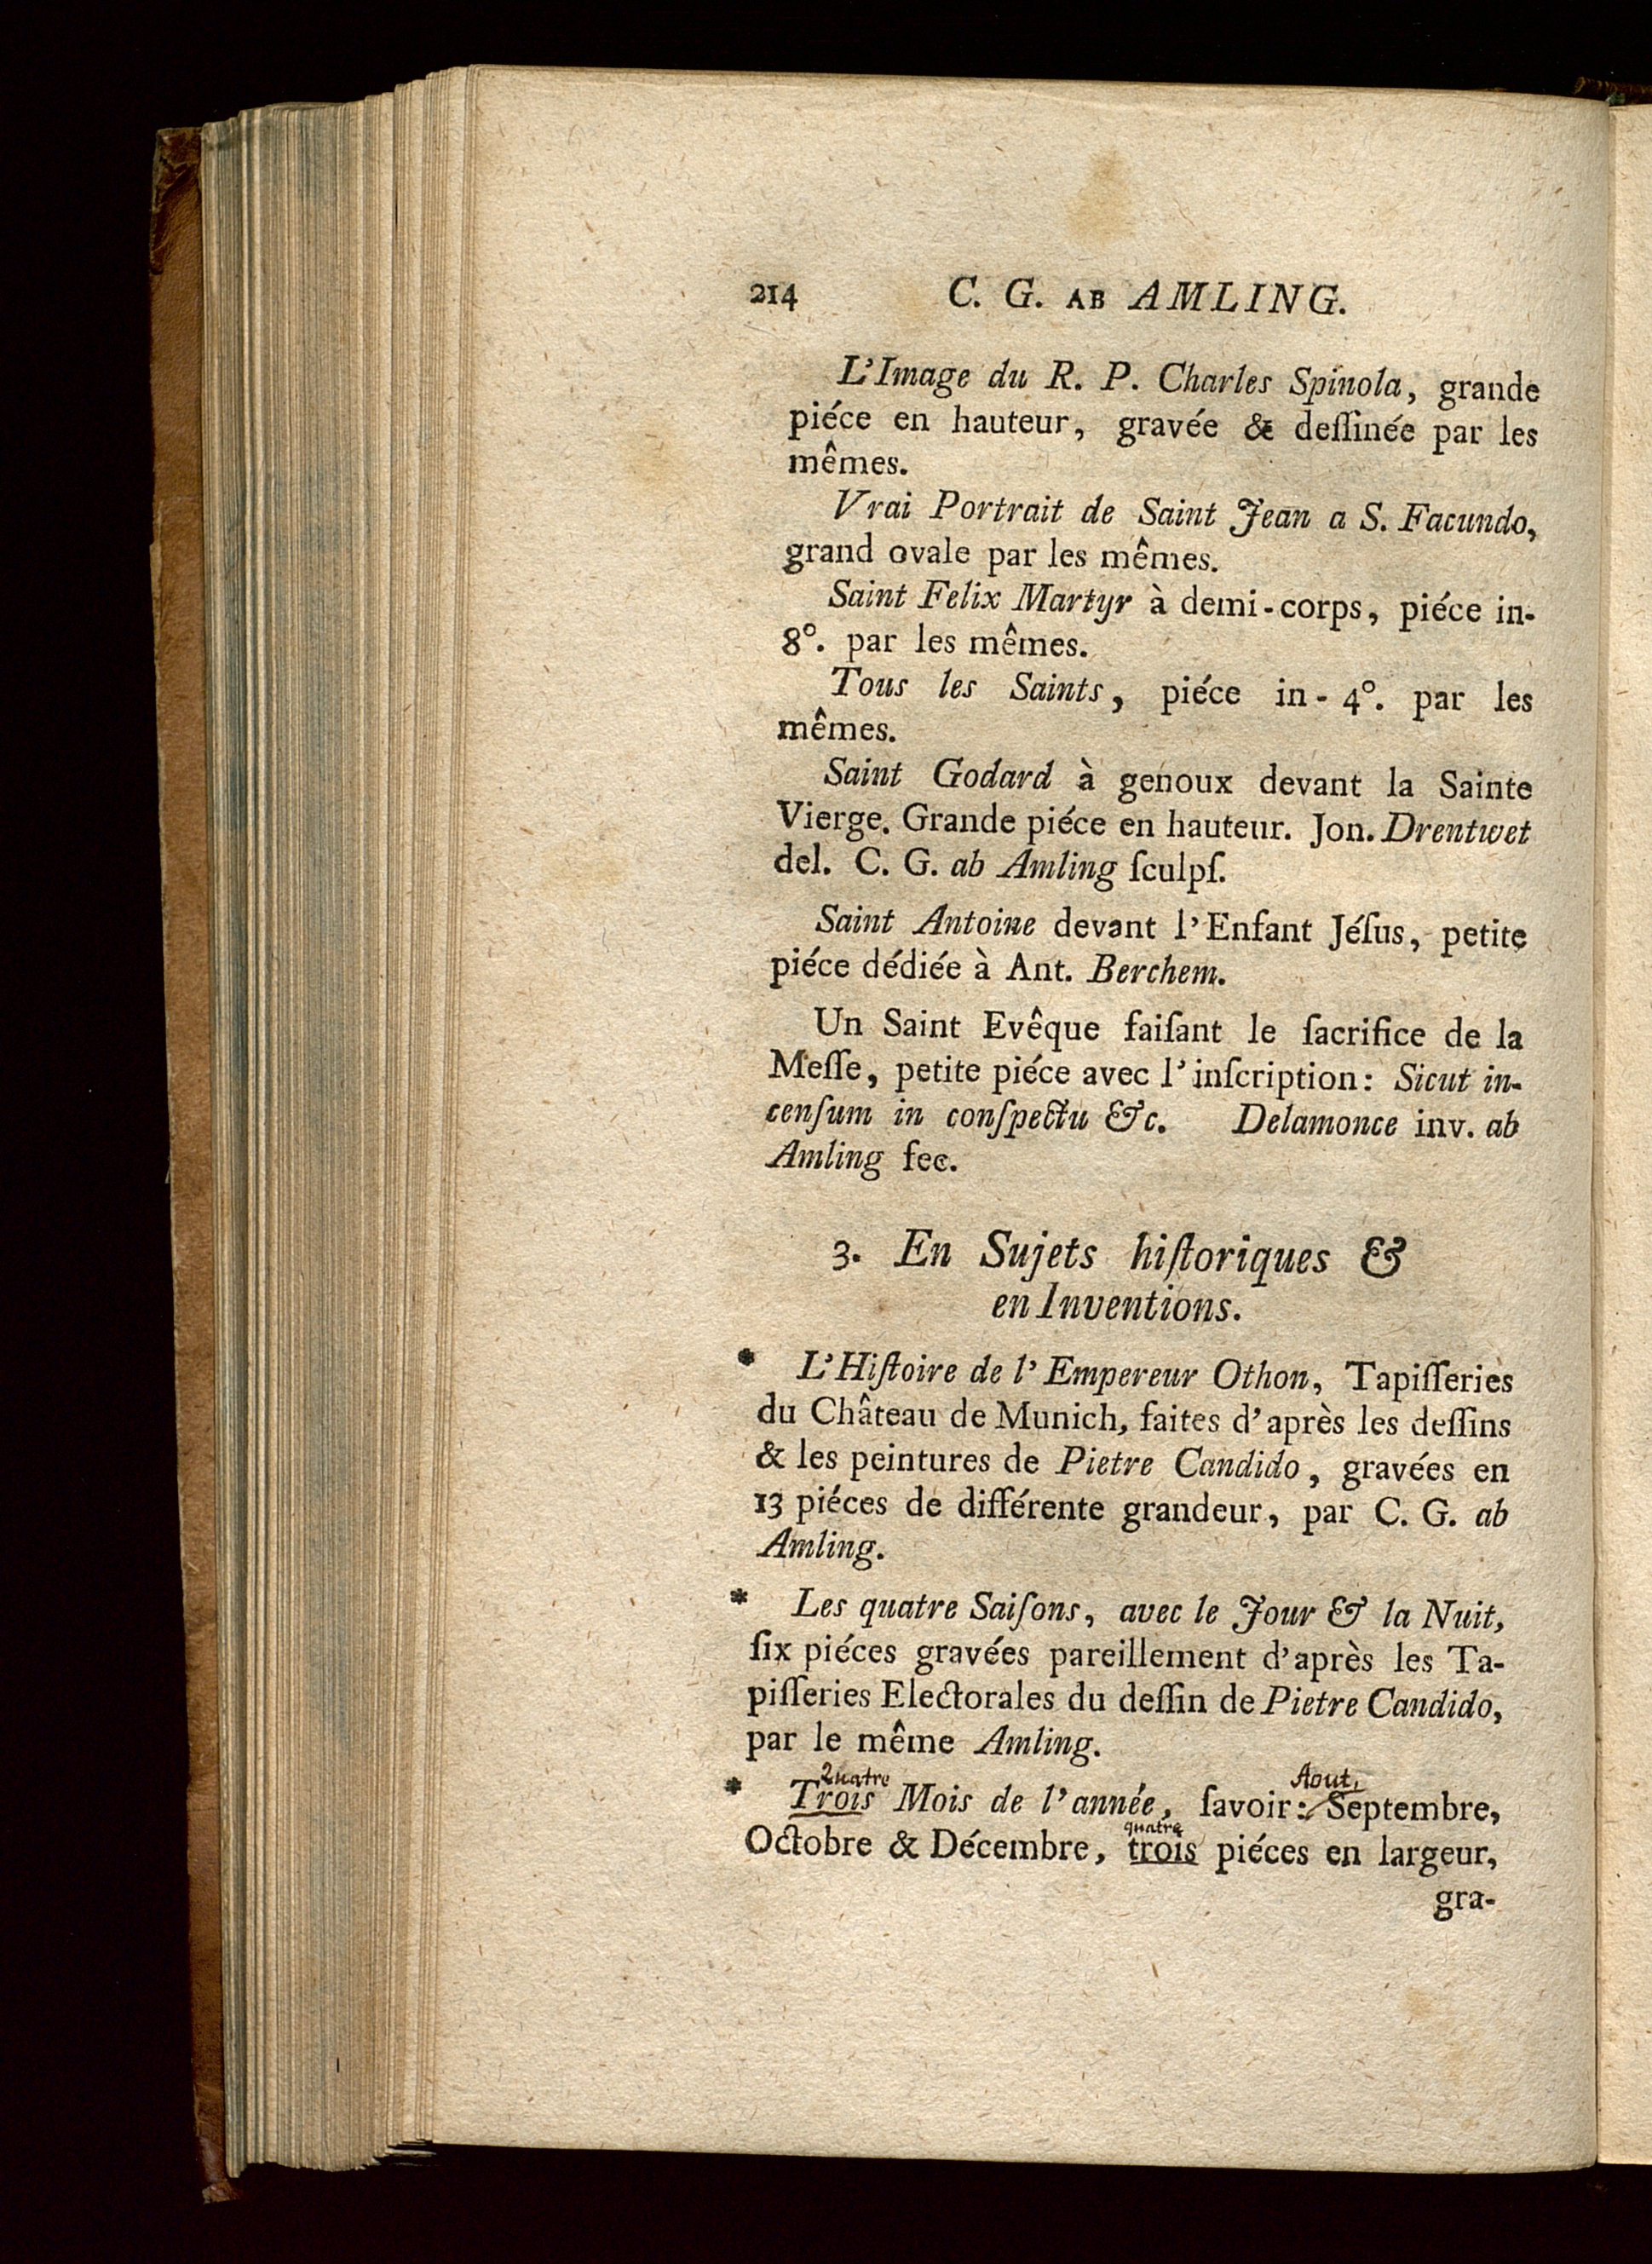 214 C. G. AB AMLING.
L'Image du R. P. Charles Spinola, grande
piéce en hauteur, gravée & deſſinée par les
mêmes.
Vrai Portrait de Saint Jean a S. Facundo,
grand ovale par les mêmes.
Saint Felix Martyr à demi-corps, piéce in-
8°. par les mêmes.
Tous les Saints, piéce in-4°. par les
mêmes.
Saint Godard à genoux devant la Sainte
Vierge. Grande piéce en hauteur. Jon. Drentwet
del. C. G. ab Amling ſculpſ.
Saint Antoine devant l'Enfant Jéſus, petite
piéce dédiée à Ant. Berchem.
Un Saint Evêque faiſant le ſacrifice de la
Meſſe, petite piéce avec l'inſcription: Sicut in-
cenſum in conſpectu &c. Delamonce inv. ab
Amling fec.
3. En Sujets hiſtoriques &
en Inventions.
* L'Hiſtoire de l'Empereur Othon, Tapiſſeries
du Château de Munich, faites d'après les deſſins
& les peintures de Pietre Candido, gravées en
13 piéces de différente grandeur, par C. G. ab
Amling.
* Les quatre Saiſons, avec le Jour & la Nuit,
ſix piéces gravées pareillement d'après les Ta-
piſſeries Electorales du deſſin de Pietre Candido,
par le même Amling.
Quatre Aout,
* Trois Mois de l'année, ſavoir: Septembre,
quatre
Octobre & Décembre, trois piéces en largeur,
gra-